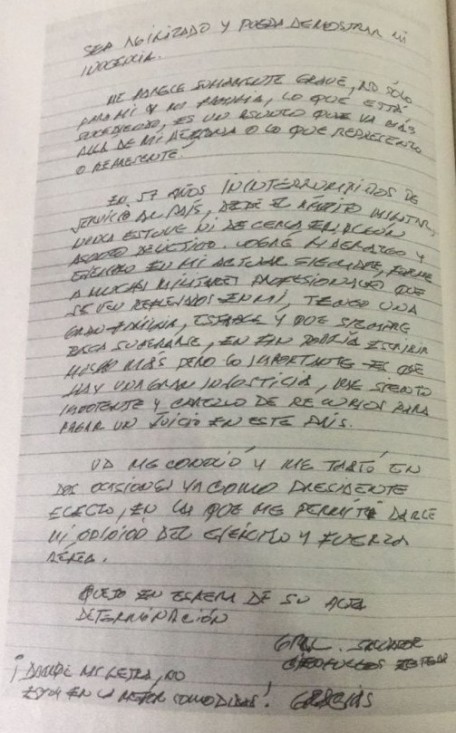 SER AGILIZADO Y PUEDA DEMOSTRAR MI
INOCENCIA.
ME PARECE SUMAMENTE GRAVE, NO SÓLO
PARA MI Y MI FAMILIA, LO QUE ESTÁ
SUCEDIENDO, ES UN ASUNTO QUE VA MÁS
ALLÁ DE MI PERSONA O LO QUE REPRESENTO
O REPRESENTÉ.
EN 57 AÑOS ININTERRUMPIDOS DE
SERVICIO AL PAÍS, DESDE EL ÁMBITO MILITAR,
NUNCA ESTUVE NI DE CERCA EN ALGÚN
ASPECTO DELICTIVO. LOGRÉ LIDERAZGO Y
EJEMPLO EN MI ACTUAR SIEMPRE, FORMÉ
A MUCHOS MILITARES PROFESIONALES QUE
SE VEN REFLEJADOS EN MI, TENGO UNA
GRAN FAMILIA, ESTABLE Y QUE SIEMPRE
BUSCA SUPERARSE, EN FIN PODRÍA ESCRIBIR
MUCHO MÁS PERO LO IMPORTANTE ES QUE
HAY UNA GRAN INJUSTICIA, ME SIENTO
IMPOTENTE Y CAREZCO DE RECURSOS PARA
PAGAR UN JUICIO EN ESTE PAÍS.
UD ME CONOCIÓ Y ME TRATÓ EN
DOS OCASIONES YA COMO PRESIDENTE
ELECTO, EN LA QUE ME PERMITÍ DARLE
MI OPINIÓN DEL EJÉRCITO Y FUERZA
AÉREA.
QUEDO EN ESPERA DE SU ALTA
DETERMINACIÓN
GRAL. SALVADOR
CIENFUEGOS ZEPEDA
¡DISCULPE MI LETRA, NO
ESTOY EN LA MEJOR COMODIDAD! GRACIAS